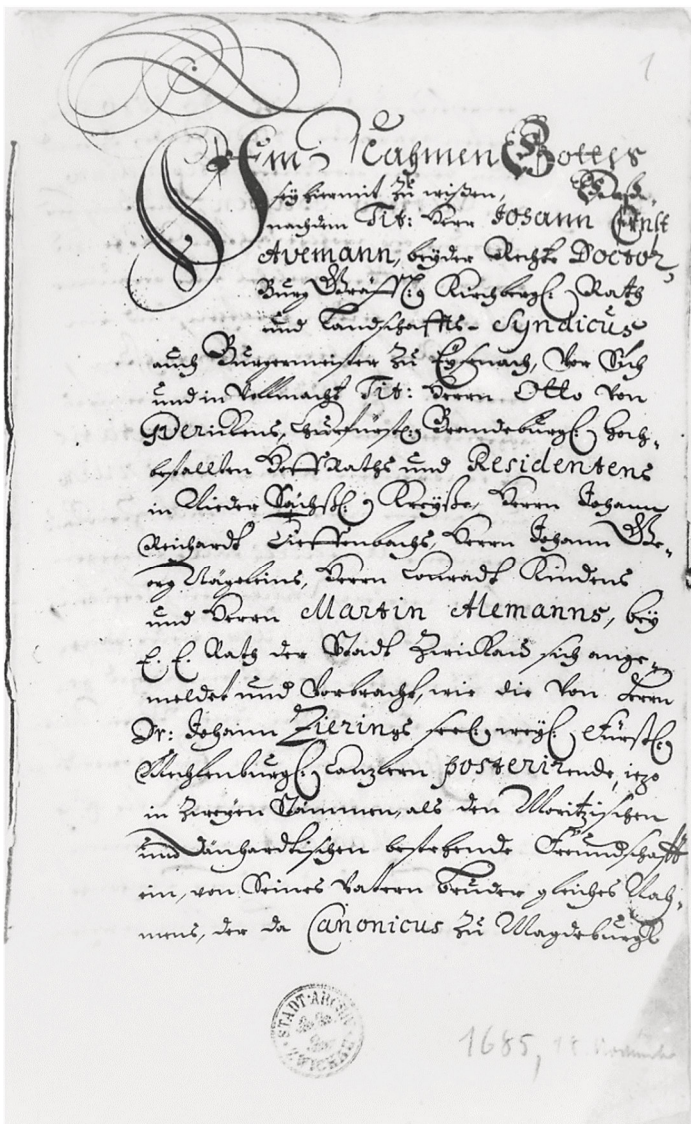 1
Im Nahmen Gottes
sey hiermit zu wißen, Daß,
nachdem Tit: Herr Johann Ernst
Avemann, beyder Rechte Doctor,
Burg Gräffl. Kirchbergl. Rath
und Landschaffts-Syndicus
auch Burgermeister zu Eysenach, vor Sich
und in Vollmacht Tit: Herrn Otto von
Gverickens, Churfürstl. Brandeburgl. hoch-
bestallten Hoff Raths und Residentens
in Nieder Sächßl. Kreyße, Herrn Johann
Reichardt Tieffenbachs, Herrn Johann Ge-
org Nägeleins, Herrn Conradt Kindens
und Herrn Martin Alemanns, bey
E. E. Rath der Stadt Zwickau sich ange-
meldet und vorbracht, wie die von Herrn
Dr: Johann Zierings seel. weyl. Fürstl.
Mechlenburgl. Canzlern posterirende, iezo
in zweyen Stämmen, als den Moritzischen
und Känhardtischen bestehende Freundschafft
ein, von Seines Vatern Bruder gleiches Nah-
mens, der da Canonicus zu Magdeburgk
STADT-ARCHIV ZWICKAU
1685, 18.